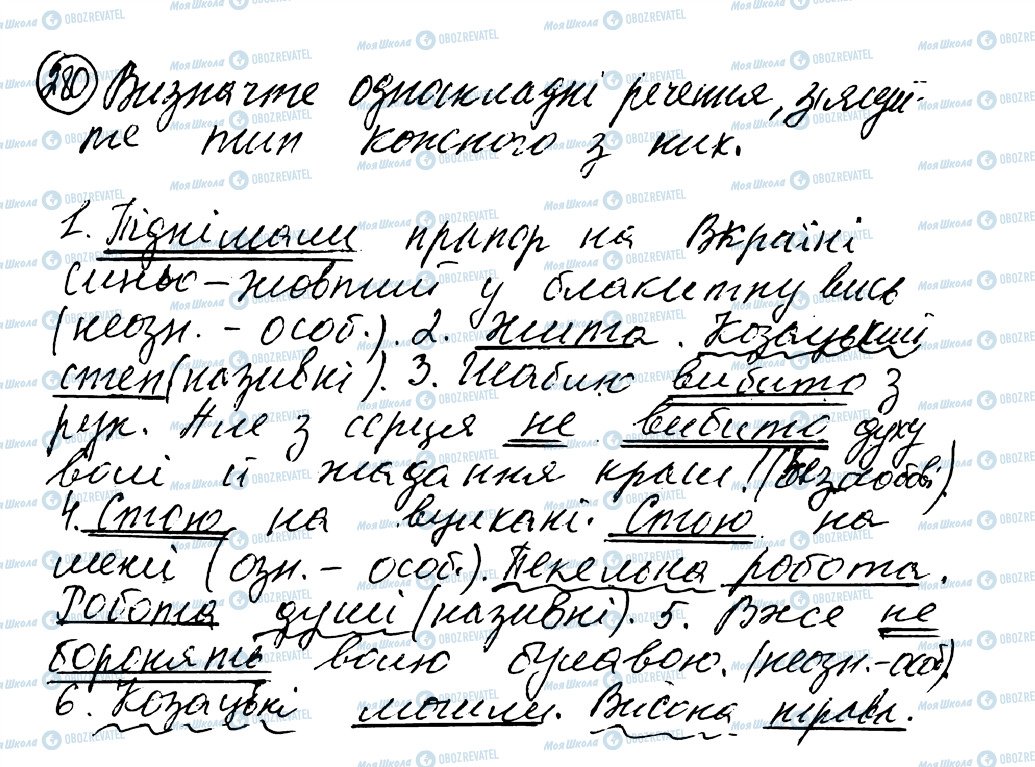 280 Визначте односкладні речення, з'ясуй-
те тип кожного з них.
1. Піднімали прапор на Вкраїні
синьо-жовтий у блакитну вись
(неозн. - особ.). 2. Жита. Козацький
степ (називні). 3. Шаблю вибито з
рук. Але з серця не вибито духу
волі й жадання краси! (Безособові).
4. Стою на вулкані. Стою на
мені (озн. - особ.). Пекельна робота.
Робота душі (називні). 5. Вже не
боронять волю булавою. (неозн.-особ).
6. Козацькі могили. Висока трава.